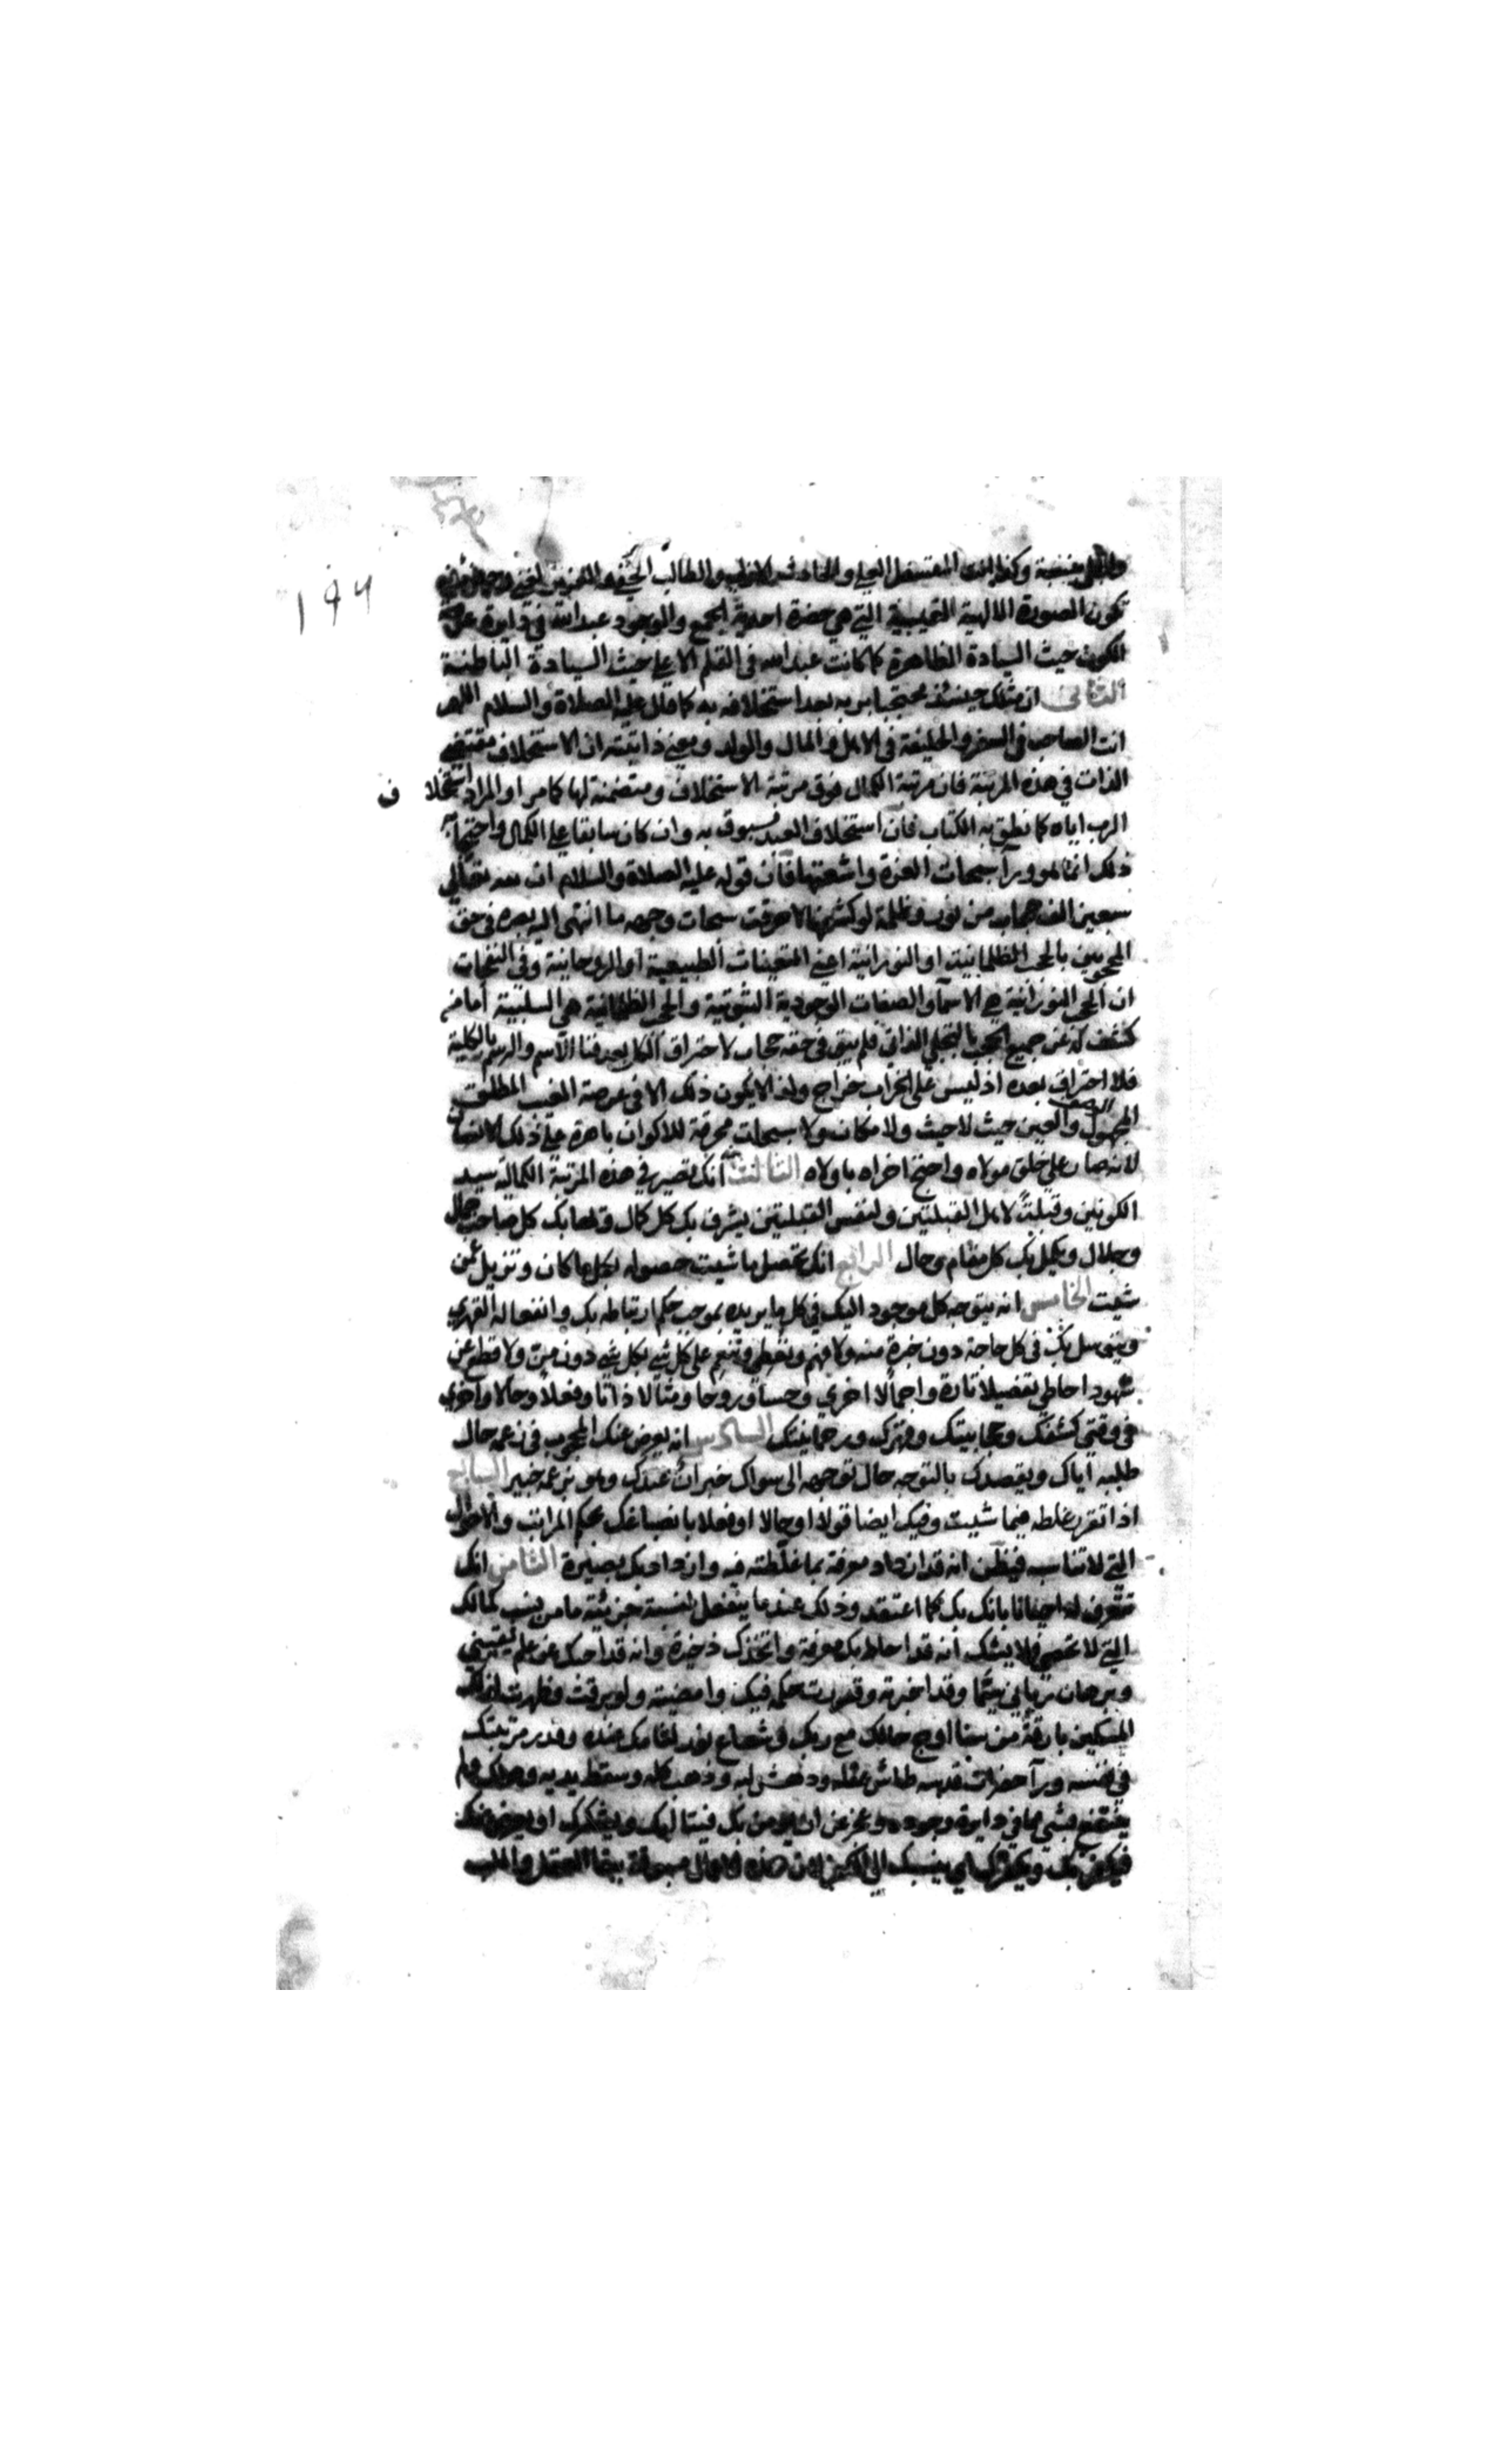 ١٩٦
تكون الصورة الالهية التميمية التي هي حضرة احدية الجمع والوجود عبد الله في دايرة
الكون حيث السيادة الظاهرة كما كانت عبد الله في القلم الاعلى حيث السيادة الباطنية
الثانى ان مثلك حينئذ محتجبا بربه بعد استخلافه به كما قال عليه الصلاة والسلام اللهم
انت الصاحب في السفر والخليفة في الاهل والمال والولد ويعني ذاتيته ان الاستخلاف مقتضى
الذات في هذه المرتبة فان مرتبة الكمال فوق مرتبة الاستخلاف ومتضمنة لها كما مر او المراد استخلاف
الرب اياه كما نطق به الكتاب فان استخلاف العبد مسبوق به وان كان سابقا على الكمال واحتجابه
ذلك انما هو ورآ سبحات العزة واشعتها فان قوله عليه الصلاة والسلام ان لله تعالى
سبعين الف حجاب من نور وظلمة لو كشفها لاحرقت سبحات وجهه ما انتهى اليه بصره في حق
المحجوبين بالحجب الظلمانية او النورانية اعني التعينات الطبيعية او الروحانية وفي النفحات
ان الحجب النورانية هي الاسمآ والصفات الوجودية الثبوتية والحجب الظلمانية هي السلبية اما من
كشف له عن جميع الحجب بالتجلي الذاتي فلم يبق في حقه حجاب لاحتراق الكل بعد فنا الاسم والرسم بالكلية
فلا احتراق بعده اذ ليس على الخراب خراج ولذا لا يكون ذلك الا في عرصة الغيب المطلق
المجهول الوصف والعين حيث لا حيث ولا مكان ولا سبحات محرقة للاكوان باهرة على ذلك الانسان
لانه صار على خلق مولاه واحتج اخراه باولاه الثالث انك تصير في هذه المرتبة الكمالية سيد
الكونين وقبلة لاهل القبلتين ولنفس القبلتين يشرف بك كل كمال وتصابك كل صاحب جمال
وجلال ويكمل بك كل مقام وحال الرابع انك تحصل ما شيت حصوله لكل ما كان وتزيل عمن
شيت الخامس انه يتوجه كل موجود اليك في كل ما يريده بموجب حكم ارتباطه بك وانفعاله القهري
ويتوسل بك في كل حاجة دون خبرة منه ولا فهم وتعطي وتنعم على كل شي بكل شي دون من ولا قطع عن
شهود احاطي تفصيلا تارة واجمالا اخرى وحسا وروحا ومثالا ذاتا وفعلا وحالا واخرى
في وقتي كشفك وحجابيتك وقهرك ورحمانيتك السادس انه يعرض عنك المحجوب في زعمه حال
طلبه اياك ويقصدك بالتوجه حال توجهه الى سواك خبران عندك وهو بزعمه خبير السابع
اذا تقرر غلطه فيما شيت وفيك ايضا قولا او حالا او فعلا بانصباغك بحكم المراتب والاحوال
التي لا تناسبه فيظن انه قد ازداد معرفة بما غلطته فيه وازداد بك بصيرة الثامن انك
تتعرف له احيانا بانك بك كما اعتقد وذلك عندما ينفعل لنسبة جزئية ما من نسب كمالك
التي لا تحصى فلا يشك انه قد احاط بك معرفة واتخذك ذخيرة وانه قد احبك عن علم يقيني
وبرهان رباني حتما وقد اخبرته وقررت حكمه فيك وامضيته ولو برقت وظهرت لذلك
المسكين بارقة من سنا اوج حالك مع ربك وشعاع نور لقامك عنده وقدر مرتبتك
في نفسه ورآ حضرات قدسه طاش عقله ودهش لبه وذهب كله وسقط بيديه وهلك ولم
ينتفع بشي مما في دايرة وجوده وعجز عن ان يومن بك فيتا ليك ويشكرك او يعرض عنك
فيكفر بك ويكفرك اي ينسبك الى الكفر لان هذه الاحوال